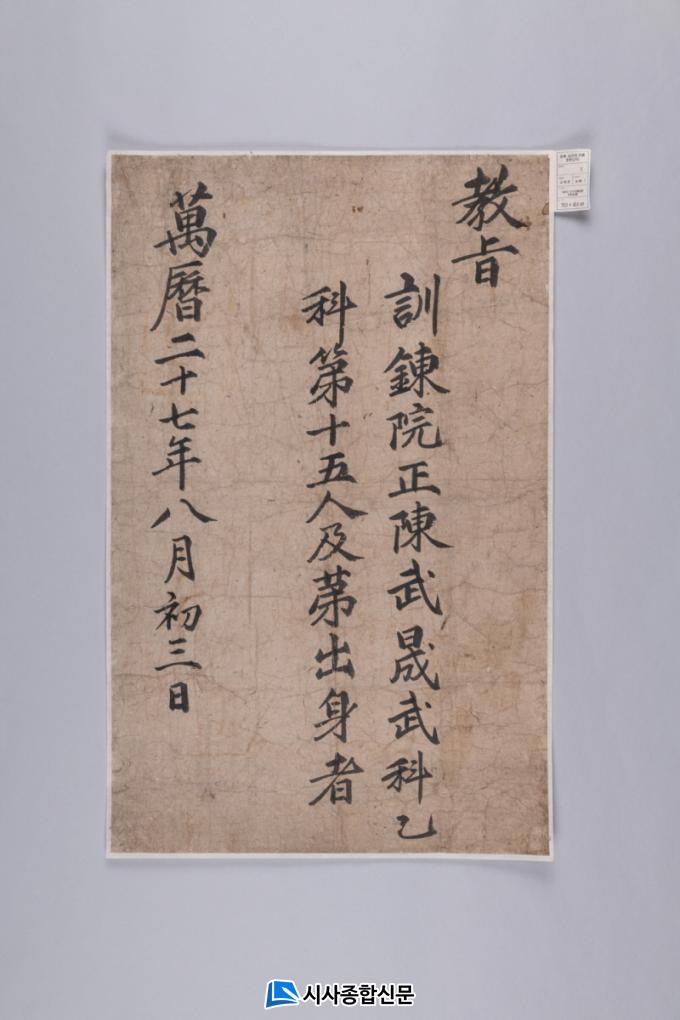 教旨
訓鍊院正陳武晟武科乙
科第十五人及第出身者
萬曆二十七年八月初三日
시사종합신문